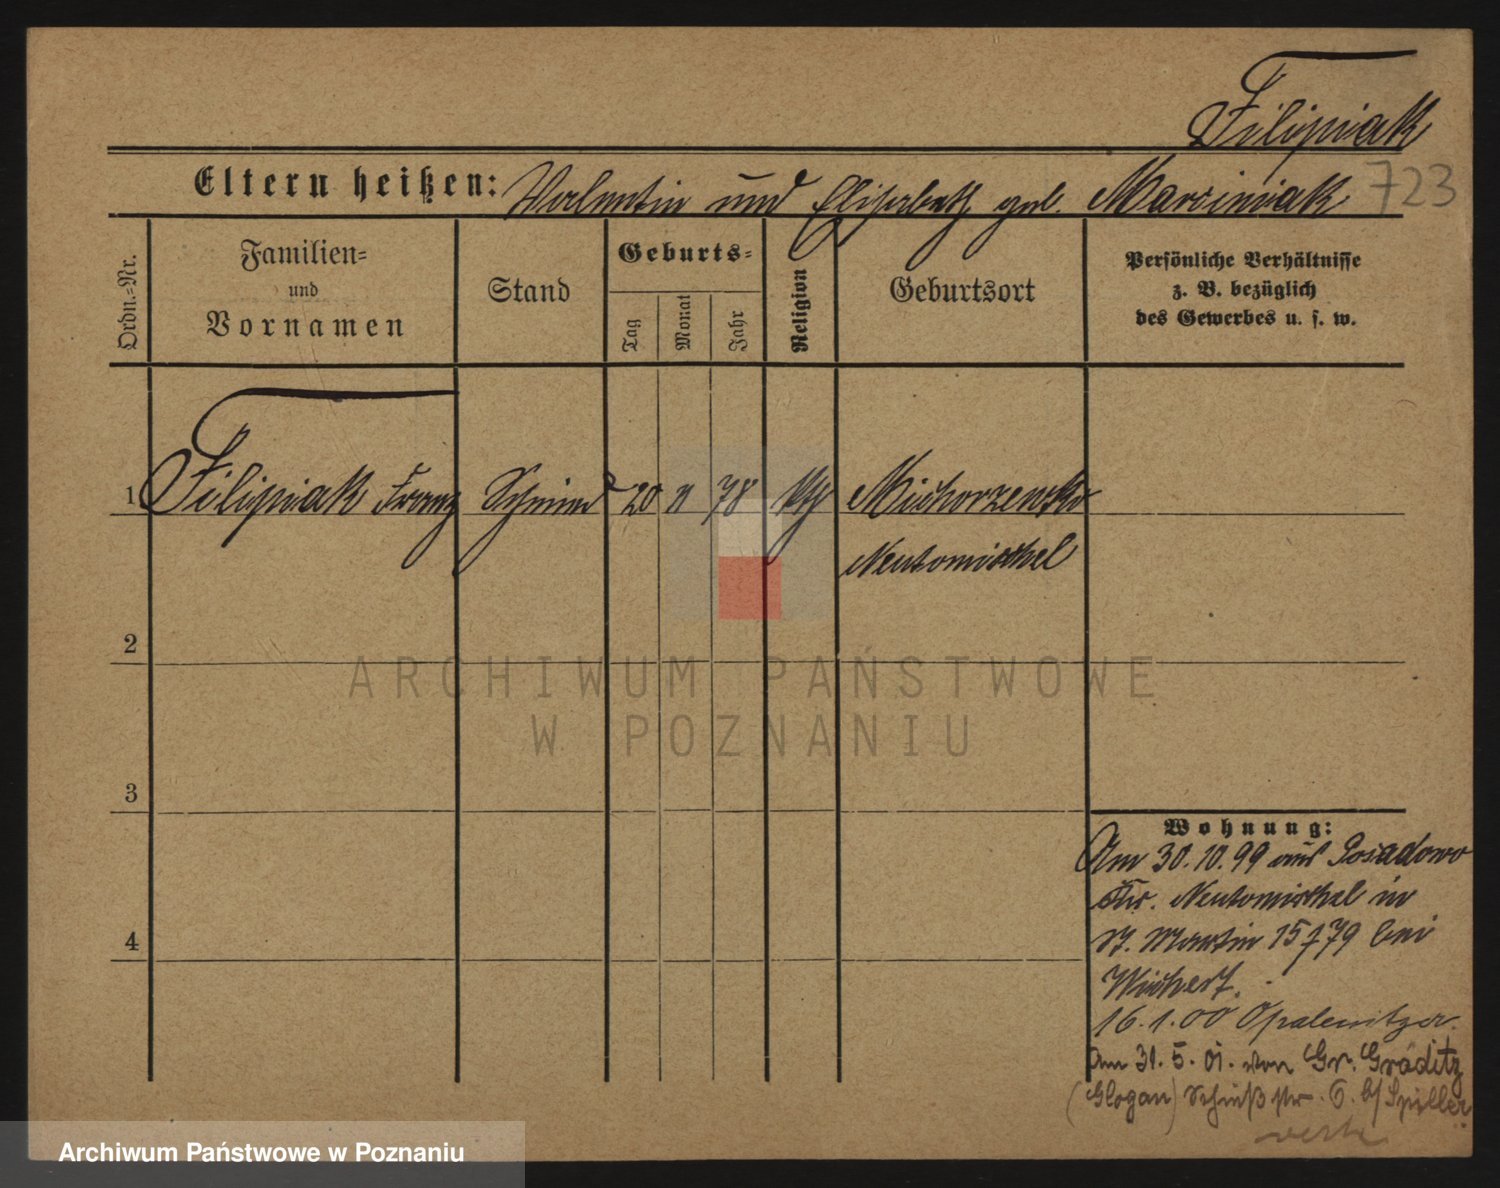 Filipiak
723
Eltern heißen: Valentin und Elisabeth geb. Marciniak
Ordn.-Nr.
Familien-
und
Vornamen
Stand
Geburts-
Tag
Monat
Jahr
Religion
Geburtsort
Persönliche Verhältnisse
z. B. bezüglich
des Gewerbes u. s. w.
1 Filipiak Franz Schmied 20 11 78 kth Michorzewko
Neutomischel
2
ARCHIWUM PAŃSTWOWE
W POZNANIU
3
Wohnung:
Am 30.10.99 aus Posadowo
Kr. Neutomischel in
St. Martin 15/79 bei
Wichert.
16.1.00 Opalenitza.
4
Am 31.5.01. von Gr. Gräditz
(Glogau) Schießstr. 6. b/ Spiller
Archiwum Państwowe w Poznaniu